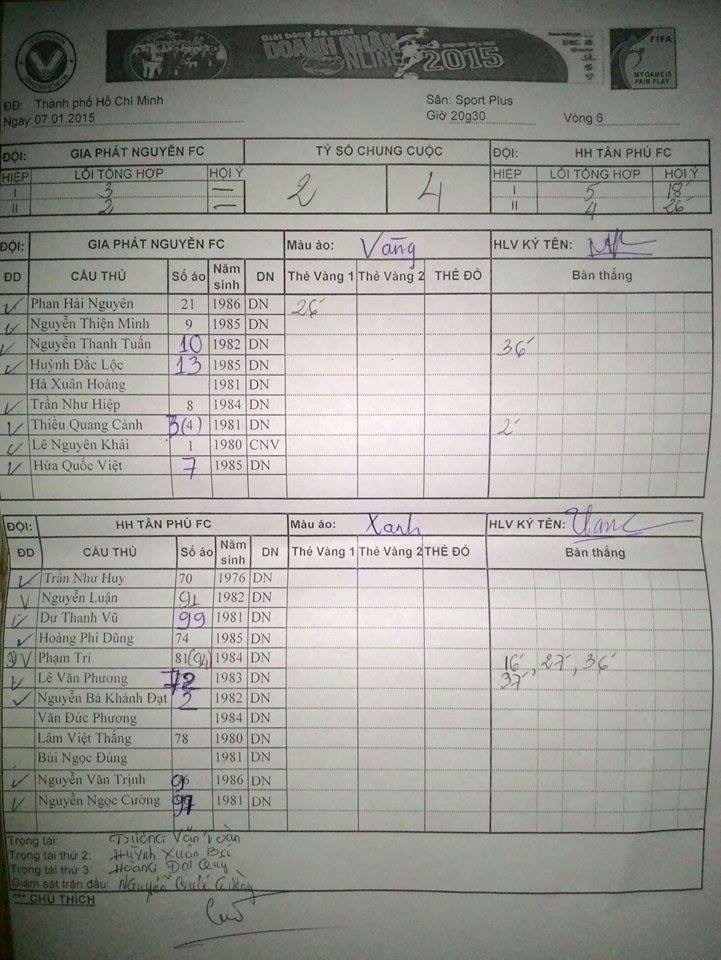 Giải bóng đá mini
DOANH NHÂN
ONLINE 2015
FIFA
MY GAME IS
FAIR PLAY
ĐĐ: Thành phố Hồ Chí Minh Sân: Sport Plus
Ngày: 07.01.2015 Giờ 20g30 Vòng 6
ĐỘI: GIA PHÁT NGUYÊN FC TỶ SỐ CHUNG CUỘC ĐỘI: HH TÂN PHÚ FC
HIỆP LỖI TỔNG HỢP HỘI Ý 2 4 HIỆP LỖI TỔNG HỢP HỘI Ý
I 3 — I 5 18'
II 2 — II 4 26'
ĐỘI: GIA PHÁT NGUYÊN FC Màu áo: Vàng HLV KÝ TÊN:
ĐD CẦU THỦ Số áo Năm sinh DN Thẻ Vàng 1 Thẻ Vàng 2 THẺ ĐỎ Bàn thắng
Phan Hải Nguyên 21 1986 DN 26'
Nguyễn Thiện Minh 9 1985 DN
Nguyễn Thanh Tuấn 10 1982 DN 36'
Huỳnh Đắc Lộc 13 1985 DN
Hà Xuân Hoàng 1981 DN
Trần Như Hiệp 8 1984 DN
Thiều Quang Cảnh 3(4) 1981 DN 2'
Lê Nguyên Khải 1 1980 CNV
Hứa Quốc Việt 7 1985 DN
ĐỘI: HH TÂN PHÚ FC Màu áo: Xanh HLV KÝ TÊN:
ĐD CẦU THỦ Số áo Năm sinh DN Thẻ Vàng 1 Thẻ Vàng 2 THẺ ĐỎ Bàn thắng
Trần Như Huy 70 1976 DN
Nguyễn Luận 91 1982 DN
Dư Thanh Vũ 99 1981 DN
Hoàng Phi Dũng 74 1985 DN
Phạm Trí 81(94) 1984 DN 16', 27', 36'
Lê Văn Phương 72 1983 DN 37'
Nguyễn Bá Khánh Đạt 2 1982 DN
Văn Đức Phương 1984 DN
Lâm Việt Thắng 78 1980 DN
Bùi Ngọc Đúng 1981 DN
Nguyễn Văn Trịnh 96 1986 DN
Nguyễn Ngọc Cường 1981 DN
Trọng tài: Văn Toàn
Trọng tài thứ 2: Huỳnh Xuân
Trọng tài thứ 3: Hoàng Đại Quy
Giám sát trận đấu: Nguyễn Quốc
*** CHÚ THÍCH